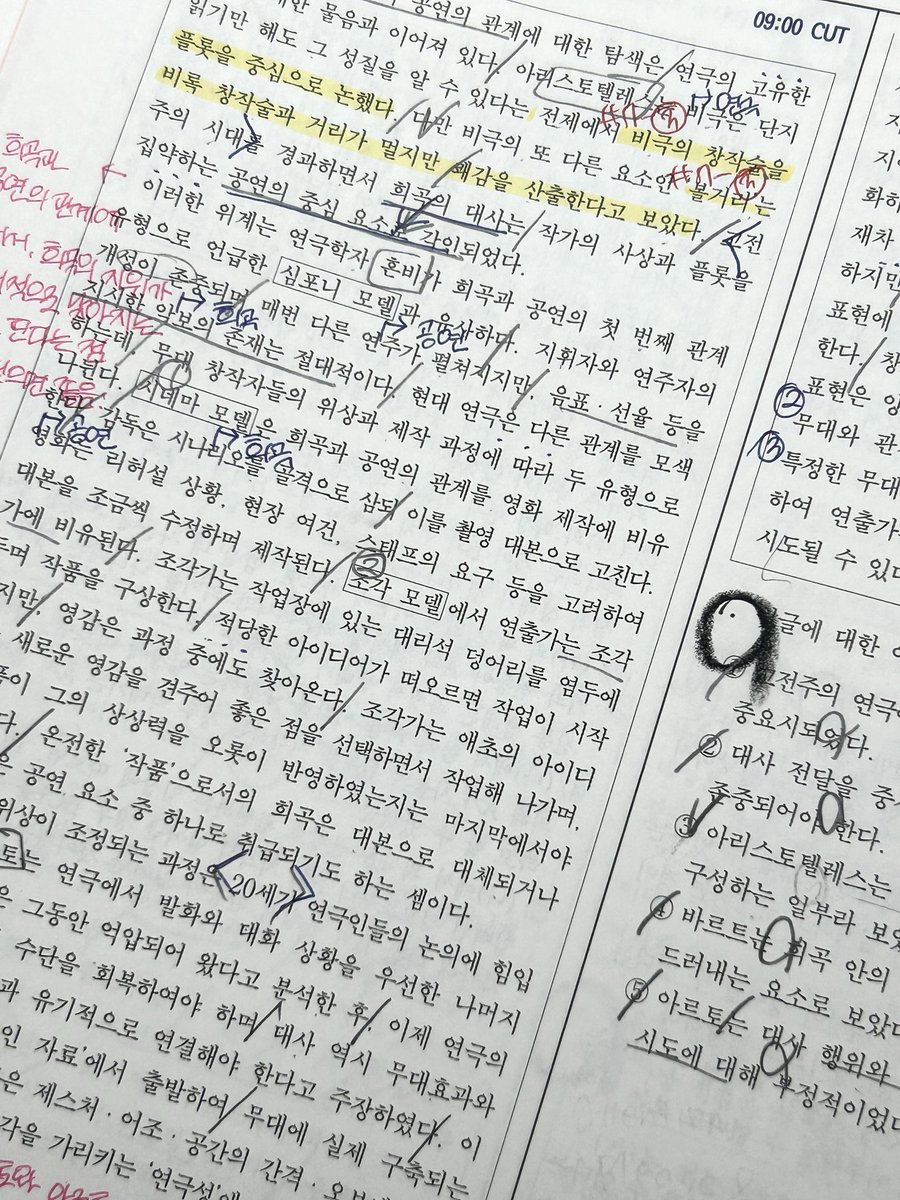 09:00 CUT
공연의 관계에 대한 탐색은 연극의 고유한
물음과 이어져 있다. 아리스토텔레스는 비극은 단지
읽기만 해도 그 성질을 알 수 있다는 전제에서 비극의 창작술을
플롯을 중심으로 논했다. 다만 비극의 또 다른 요소인 볼거리는
비록 창작술과 거리가 멀지만 쾌감을 산출한다고 보았다. 고전
주의 시대를 경과하면서 희곡의 대사는 작가의 사상과 플롯을
집약하는 공연의 중심 요소로 각인되었다.
이러한 위계는 연극학자 혼비가 희곡과 공연의 첫 번째 관계
유형으로 언급한 심포니 모델과 유사하다. 지휘자와 연주자의
개성이 존중되며 매번 다른 연주가 펼쳐지지만, 음표, 선율 등을
지시한 악보의 존재는 절대적이다. 현대 연극은 다른 관계를 모색
하는데, 무대 창작자들의 위상과 제작 과정에 따라 두 유형으로
나뉜다. 시네마 모델은 희곡과 공연의 관계를 영화 제작에 비유
한다. 감독은 시나리오를 골격으로 삼되 이를 촬영 대본으로 고친다.
영화는 리허설 상황, 현장 여건, 스태프의 요구 등을 고려하여
대본을 조금씩 수정하며 제작된다. 조각 모델에서 연출가는 조각
가에 비유된다. 조각가는 작업장에 있는 대리석 덩어리를 염두에
두며 작품을 구상한다. 적당한 아이디어가 떠오르면 작업이 시작
지만, 영감은 과정 중에도 찾아온다. 조각가는 애초의 아이디
새로운 영감을 견주어 좋은 점을 선택하면서 작업해 나가며,
그의 상상력을 오롯이 반영하였는지는 마지막에서야
다. 온전한 '작품'으로서의 희곡은 대본으로 대체되거나
공연 요소 중 하나로 취급되기도 하는 셈이다.
위상이 조정되는 과정은 20세기 연극인들의 논의에 힘입
토는 연극에서 발화와 대화 상황을 우선한 나머지
은 그동안 억압되어 왔다고 분석한 후, 이제 연극의
수단을 회복하여야 하며 대사 역시 무대효과와
과 유기적으로 연결해야 한다고 주장하였다. 이
인 자료'에서 출발하여 무대에 실제 구축되는
은 제스처·어조·공간의 간격·
각을 가리키는 '연극성'에
희곡과
공연의 관계에
희곡의 지위가
적으로 낮아지는
된다는 점
영화
희곡
공연
공연
희곡
②
화하
재차
하지만
표현에
한다. 창
표현은 양
⑫
무대와 관
⑬
특정한 무대
하여 연출가
시도될 수 있다
9
글에 대한
① 고전주의 연극에
중요시되었다.
② 대사 전달을 중
존중되어야 한다.
③ 아리스토텔레스는
구성하는 일부라 보았
④ 바르트는 희곡 안의
드러내는 요소로 보았다
⑤ 아르토는 대사 행위와
시도에 대해 부정적이었다